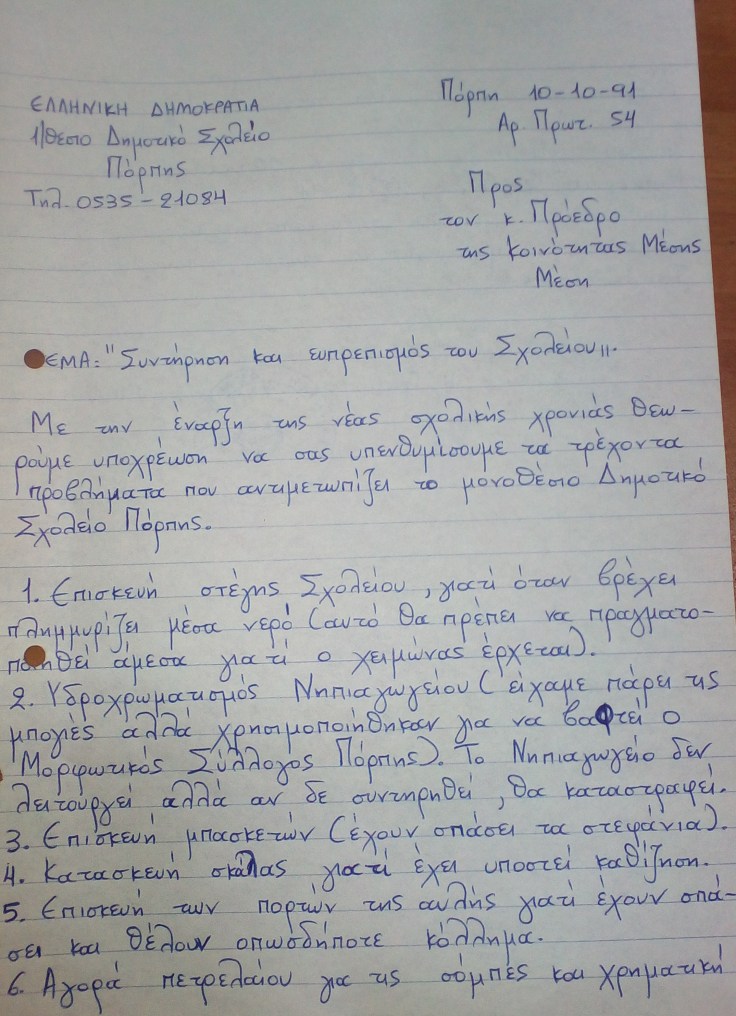 ΕΛΛΗΝΙΚΗ ΔΗΜΟΚΡΑΤΙΑ
1/θεσιο Δημοτικό Σχολείο
Πόρπης
Τηλ. 0535-21084
Πόρπη 10-10-91
Αρ. Πρωτ. 54
Προς
τον κ. Πρόεδρο
της Κοινότητας Μέσης
Μέση
ΕΜΑ: "Συντήρηση και ευπρεπισμός του Σχολείου".
Με την έναρξη της νέας σχολικής χρονιάς θεω-
ρούμε υποχρέωση να σας υπενθυμίσουμε τα τρέχοντα
προβλήματα που αντιμετωπίζει το μονοθέσιο Δημοτικό
Σχολείο Πόρπης.
1. Επισκευή στέγης Σχολείου, γιατί όταν βρέχει
πλημμυρίζει μέσα νερό (αυτό θα πρέπει να πραγματο-
ποιηθεί άμεσα γιατί ο χειμώνας έρχεται).
2. Υδροχρωματισμός Νηπιαγωγείου (είχαμε πάρει τις
μπογιές αλλά χρησιμοποιήθηκαν για να βαφτεί ο
Μορφωτικός Σύλλογος Πόρπης). Το Νηπιαγωγείο δεν
λειτουργεί αλλά αν δε συντηρηθεί, θα καταστραφεί.
3. Επισκευή μπασκετών (έχουν σπάσει τα στεφάνια).
4. Κατασκευή σκάλας γιατί έχει υποστεί καθίζηση.
5. Επισκευή των πορτών της αυλής γιατί έχουν σπά-
σει και θέλουν οπωσδήποτε κόλλημα.
6. Αγορά πετρελαίου για τις σόμπες και χρηματική